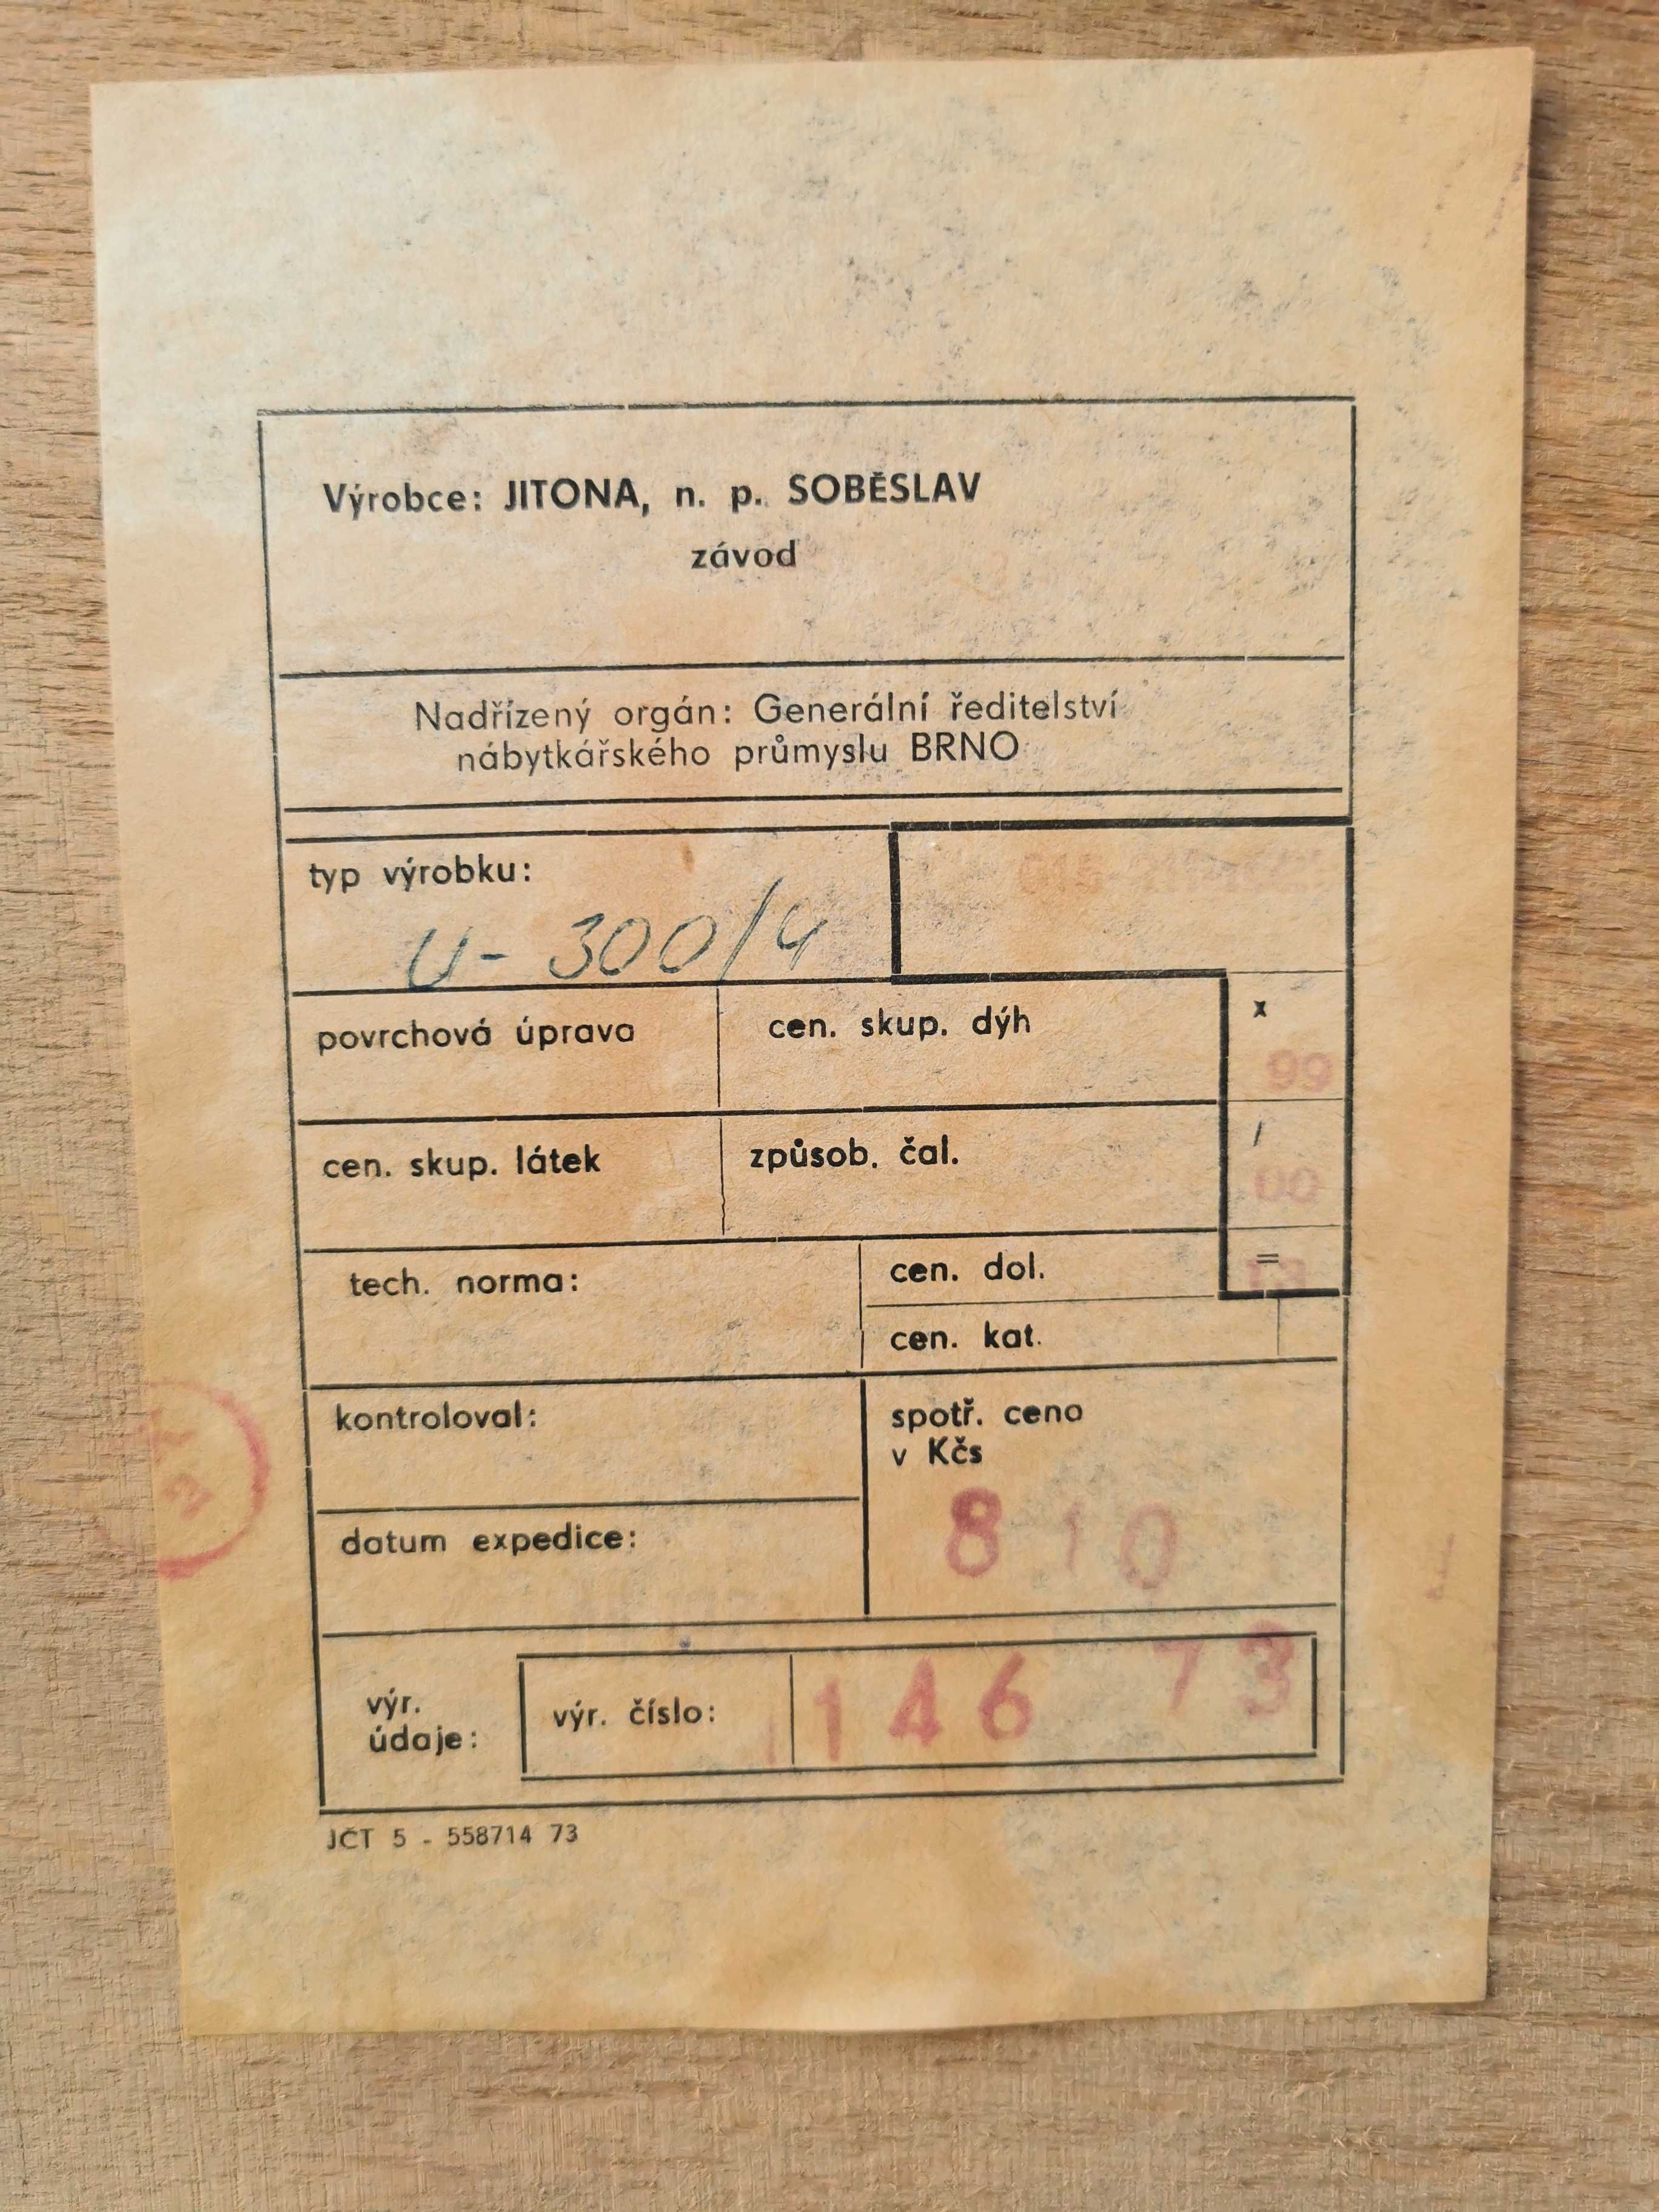 Výrobce: JITONA, n. p. SOBĚSLAV
závod
Nadřízený orgán: Generální ředitelství
nábytkářského průmyslu BRNO
typ výrobku:
U- 300/4
povrchová úprava
cen. skup. dýh
x
99
cen. skup. látek
způsob. čal.
/
00
tech. norma:
cen. dol.
=
cen. kat.
kontroloval:
spotř. cena
v Kčs
810
datum expedice:
výr.
údaje:
výr. číslo:
146 73
JČT 5 - 558714 73